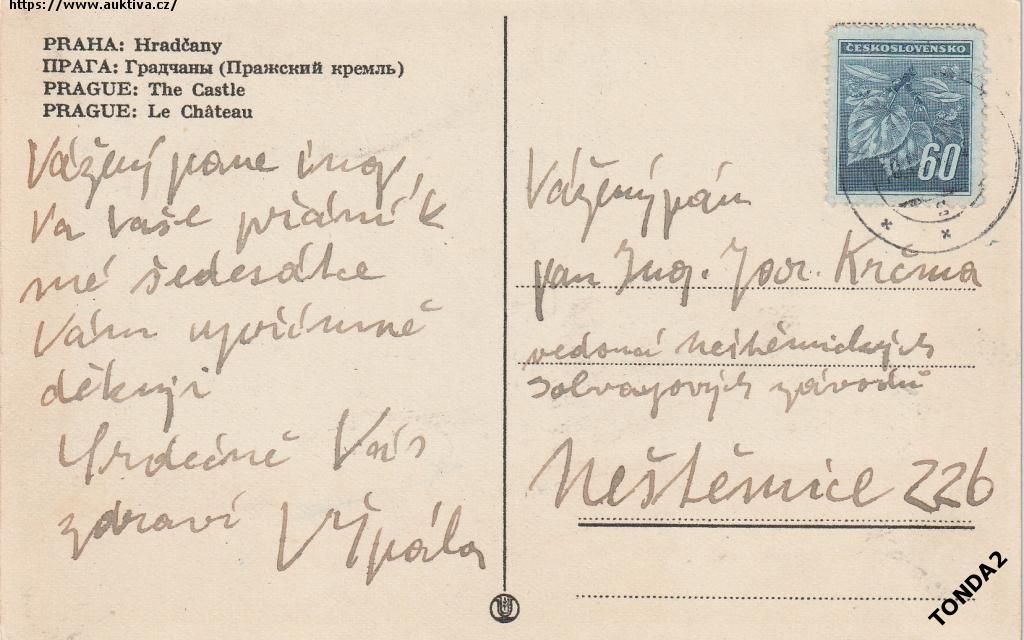 https://www.auktiva.cz/
PRAHA: Hradčany
ПРАГА: Градчаны (Пражский кремль)
PRAGUE: The Castle
PRAGUE: Le Château
Vážený pane ing,
Va vaše přání k
mé šedesátce
Vám upřímně
děkuji
Srdečně Vás
zdraví VŠpála
ČESKOSLOVENSKO
60
Vážený pán
pan Ing. Jar. Krčma
vedoucí neštěmických
solvayových závodů
Neštěmice 226
TONDA2